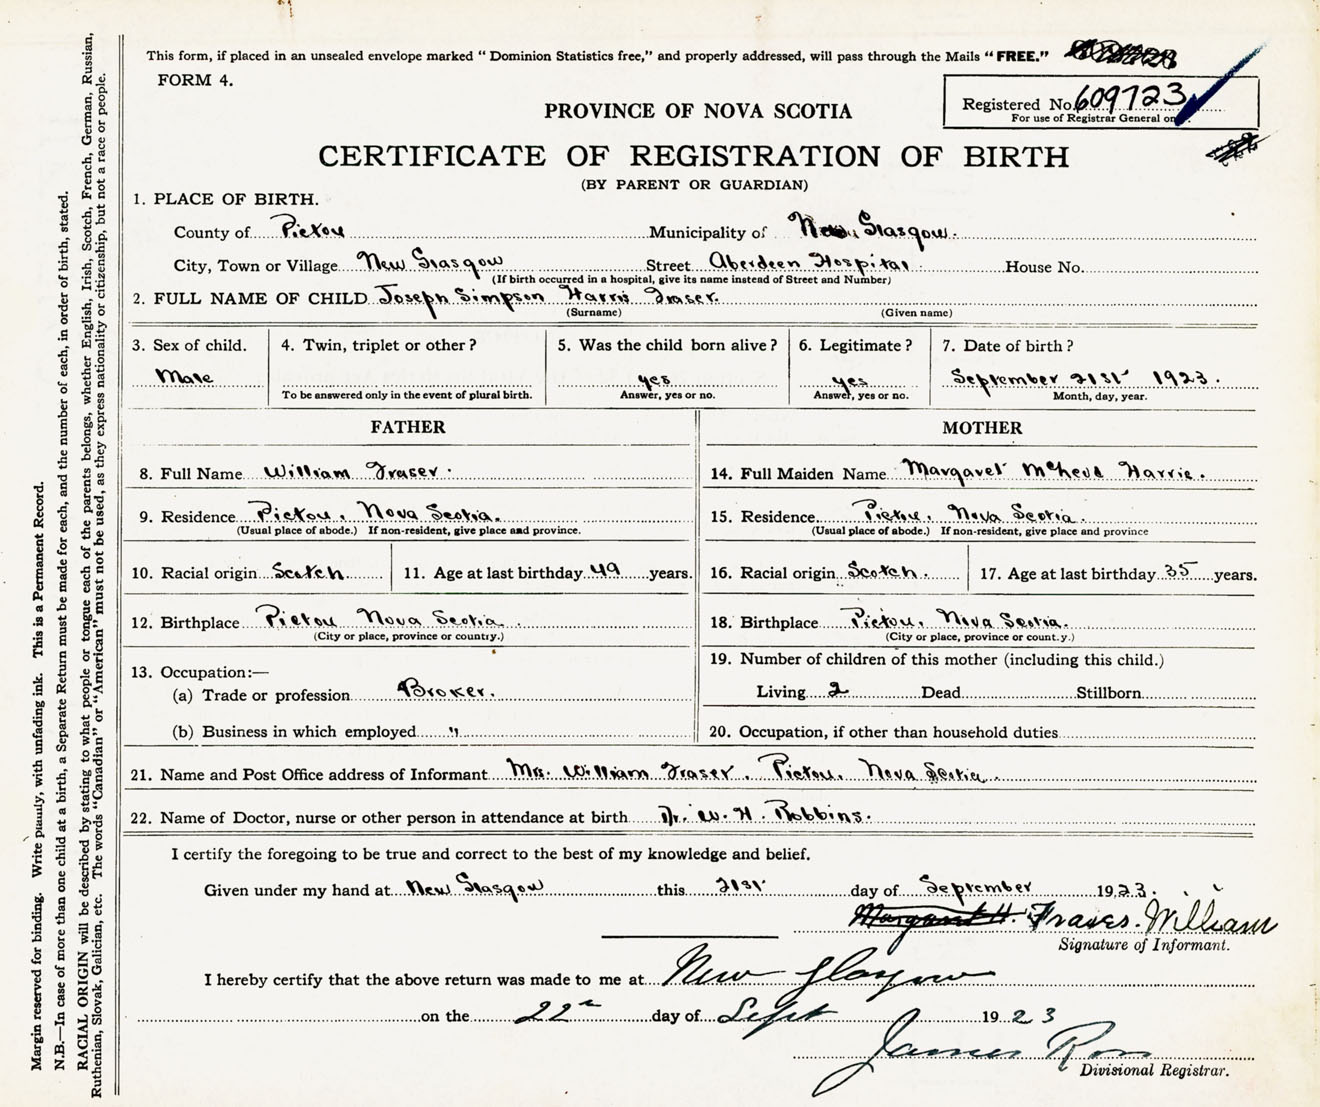 This form, if placed in an unsealed envelope marked “ Dominion Statistics free,” and properly addressed, will pass through the Mails “ FREE.”
FORM 4.
Registered No. 609723
For use of Registrar General on
PROVINCE OF NOVA SCOTIA
CERTIFICATE OF REGISTRATION OF BIRTH
(BY PARENT OR GUARDIAN)
1. PLACE OF BIRTH.
County of Pictou Municipality of New Glasgow.
City, Town or Village New Glasgow Street Aberdeen Hospital House No.
(If birth occurred in a hospital, give its name instead of Street and Number)
2. FULL NAME OF CHILD Joseph Simpson Harris Fraser.
(Surname) (Given name)
3. Sex of child. 4. Twin, triplet or other? 5. Was the child born alive? 6. Legitimate? 7. Date of birth?
Male yes yes September 21st 1923.
To be answered only in the event of plural birth. Answer, yes or no. Answer, yes or no. Month, day, year.
FATHER MOTHER
8. Full Name William Fraser. 14. Full Maiden Name Margaret Harris.
9. Residence Pictou, Nova Scotia. 15. Residence Pictou, Nova Scotia.
(Usual place of abode.) If non-resident, give place and province. (Usual place of abode.) If non-resident, give place and province
10. Racial origin Scotch. 11. Age at last birthday 49 years. 16. Racial origin Scotch. 17. Age at last birthday 35 years.
12. Birthplace Pictou Nova Scotia. 18. Birthplace Pictou, Nova Scotia.
(City or place, province or country.) (City or place, province or count.y.)
13. Occupation:— 19. Number of children of this mother (including this child.)
(a) Trade or profession Broker. Living 2 Dead Stillborn
(b) Business in which employed " 20. Occupation, if other than household duties
21. Name and Post Office address of Informant Mrs. William Fraser, Pictou, Nova Scotia.
22. Name of Doctor, nurse or other person in attendance at birth Dr. W. H. Robbins.
I certify the foregoing to be true and correct to the best of my knowledge and belief.
Given under my hand at New Glasgow this 21st day of September 1923.
Margaret H. Fraser. William
Signature of Informant.
I hereby certify that the above return was made to me at New Glasgow
on the 22 day of Sept 1923
James Ross
Divisional Registrar.
Margin reserved for binding. Write plainly, with unfading ink. This is a Permanent Record.
N.B.—In case of more than one child at a birth, a Separate Return must be made for each, and the number of each, in order of birth, stated.
RACIAL ORIGIN will be described by stating to what people or tongue each of the parents belongs, whether English, Irish, Scotch, French, German, Russian,
Ruthenian, Slovak, Galician, etc. The words “Canadian” or “American” must not be used, as they express nationality or citizenship, but not a race or people.